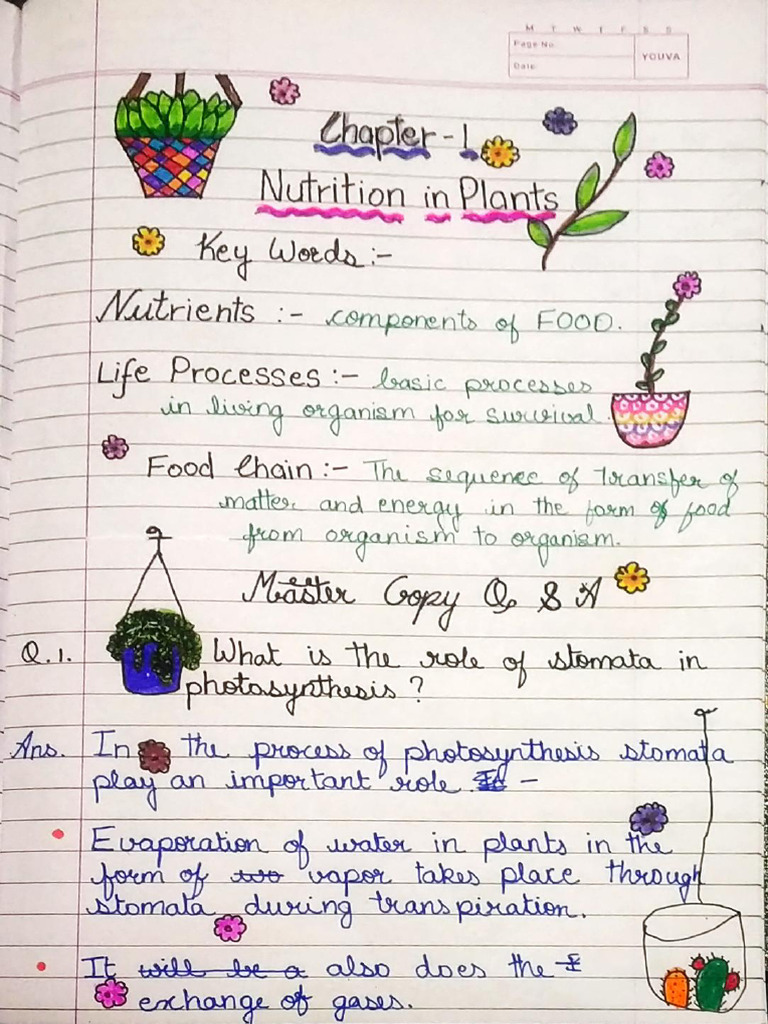 M T W T F S S
Page No.
YOUVA
Date:
Chapter - 1
Nutrition in Plants
Key Words :-
Nutrients :- components of FOOD.
Life Processes :- basic processes
in living organism for survival.
Food Chain :- The sequence of transfer of
matter and energy in the form of food
from organism to organism.
Master Copy Q & A
Q.1. What is the role of stomata in
photosynthesis ?
Ans. In the process of photosynthesis stomata
play an important role -
• Evaporation of water in plants in the
form of vapor takes place through
stomata during transpiration.
• It will be a also does the
exchange of gases.